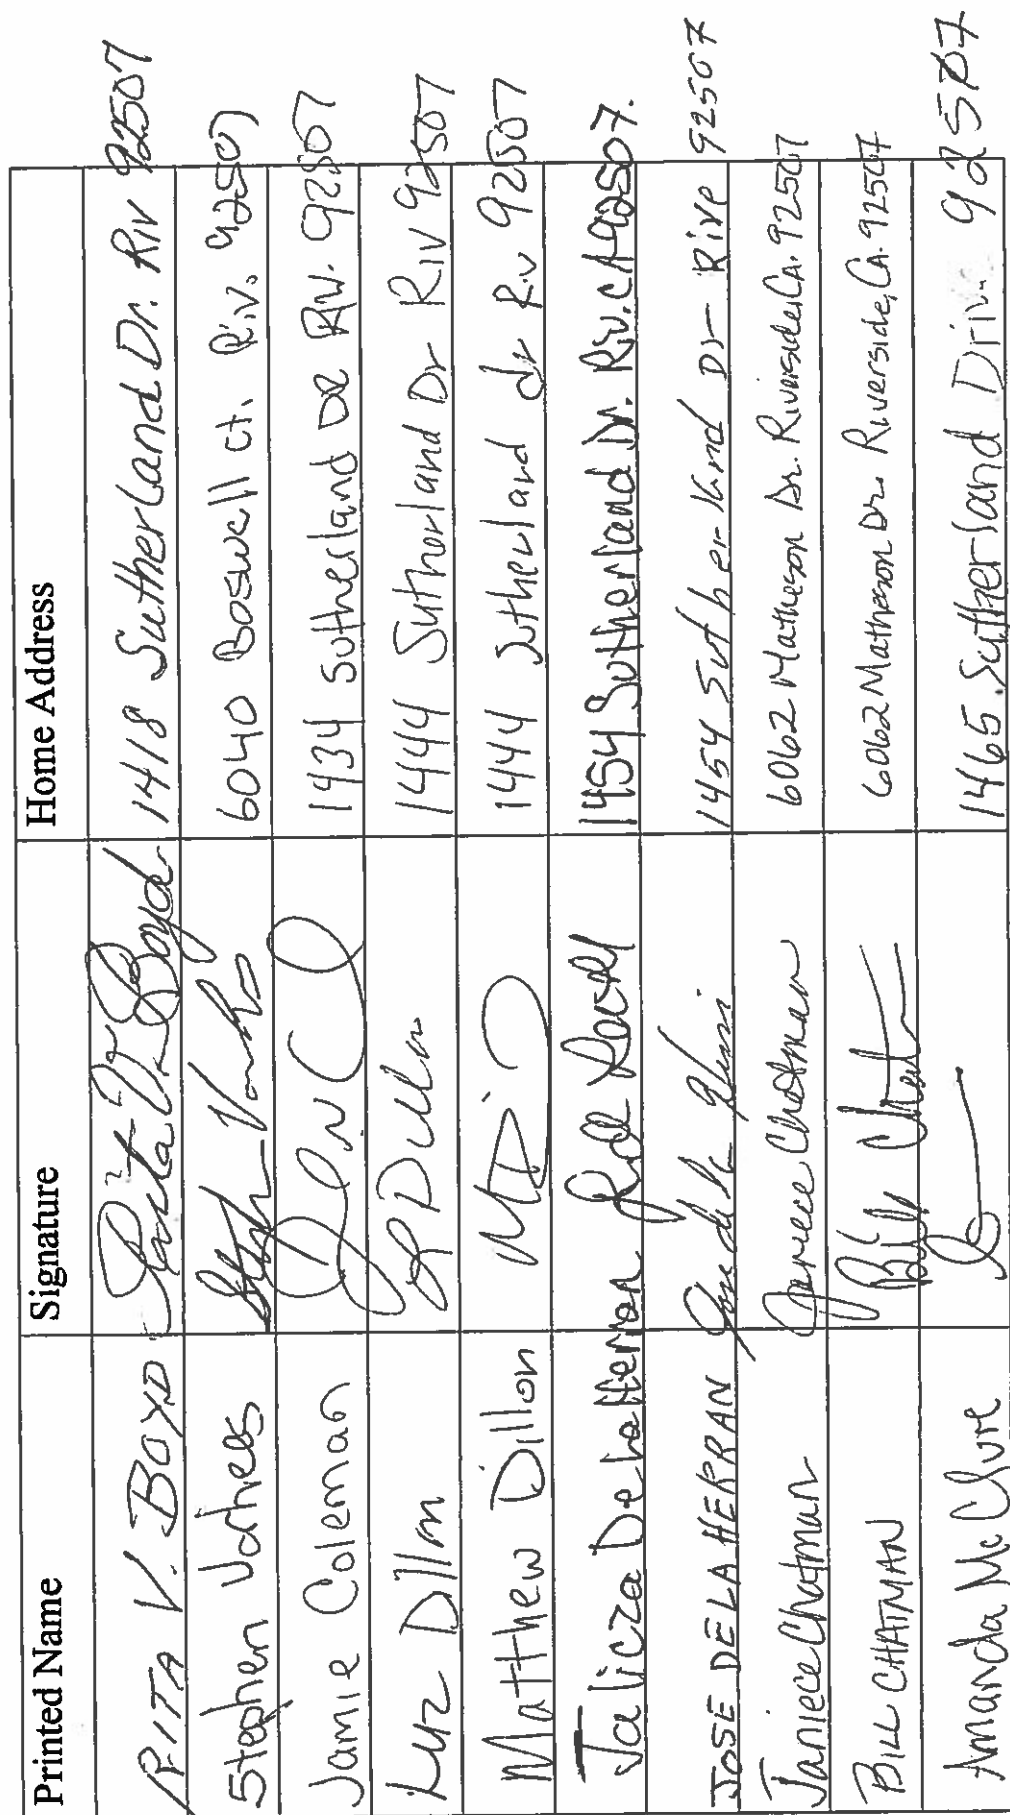 Printed Name Signature Home Address
RITA V. BOYD Rita V. Boyd 1418 Sutherland Dr. Riv 92507
Stephen 6040 Boswell ct. Riv. 92507
Jamie Coleman 1434 Sutherland DR RIV. 92507
Luz Dillon L Dillon 1444 Sutherland Dr Riv 92507
Matthew Dillon 1444 Sutherland dr Riv 92507
Jalicza Delaherran 1454 Sutherland Dr. Riv. CA 92507.
JOSE DE LA HERRAN 1454 Sutherland Dr- Rive 92507
Janiece Chatman Janiece Chatman 6062 Matheson Dr. Riverside, CA. 92507
BILL CHATMAN Bill Chat 6062 Matheson Dr. Riverside, CA. 92507
Amanda McClure 1465 Sutherland Drive 92507